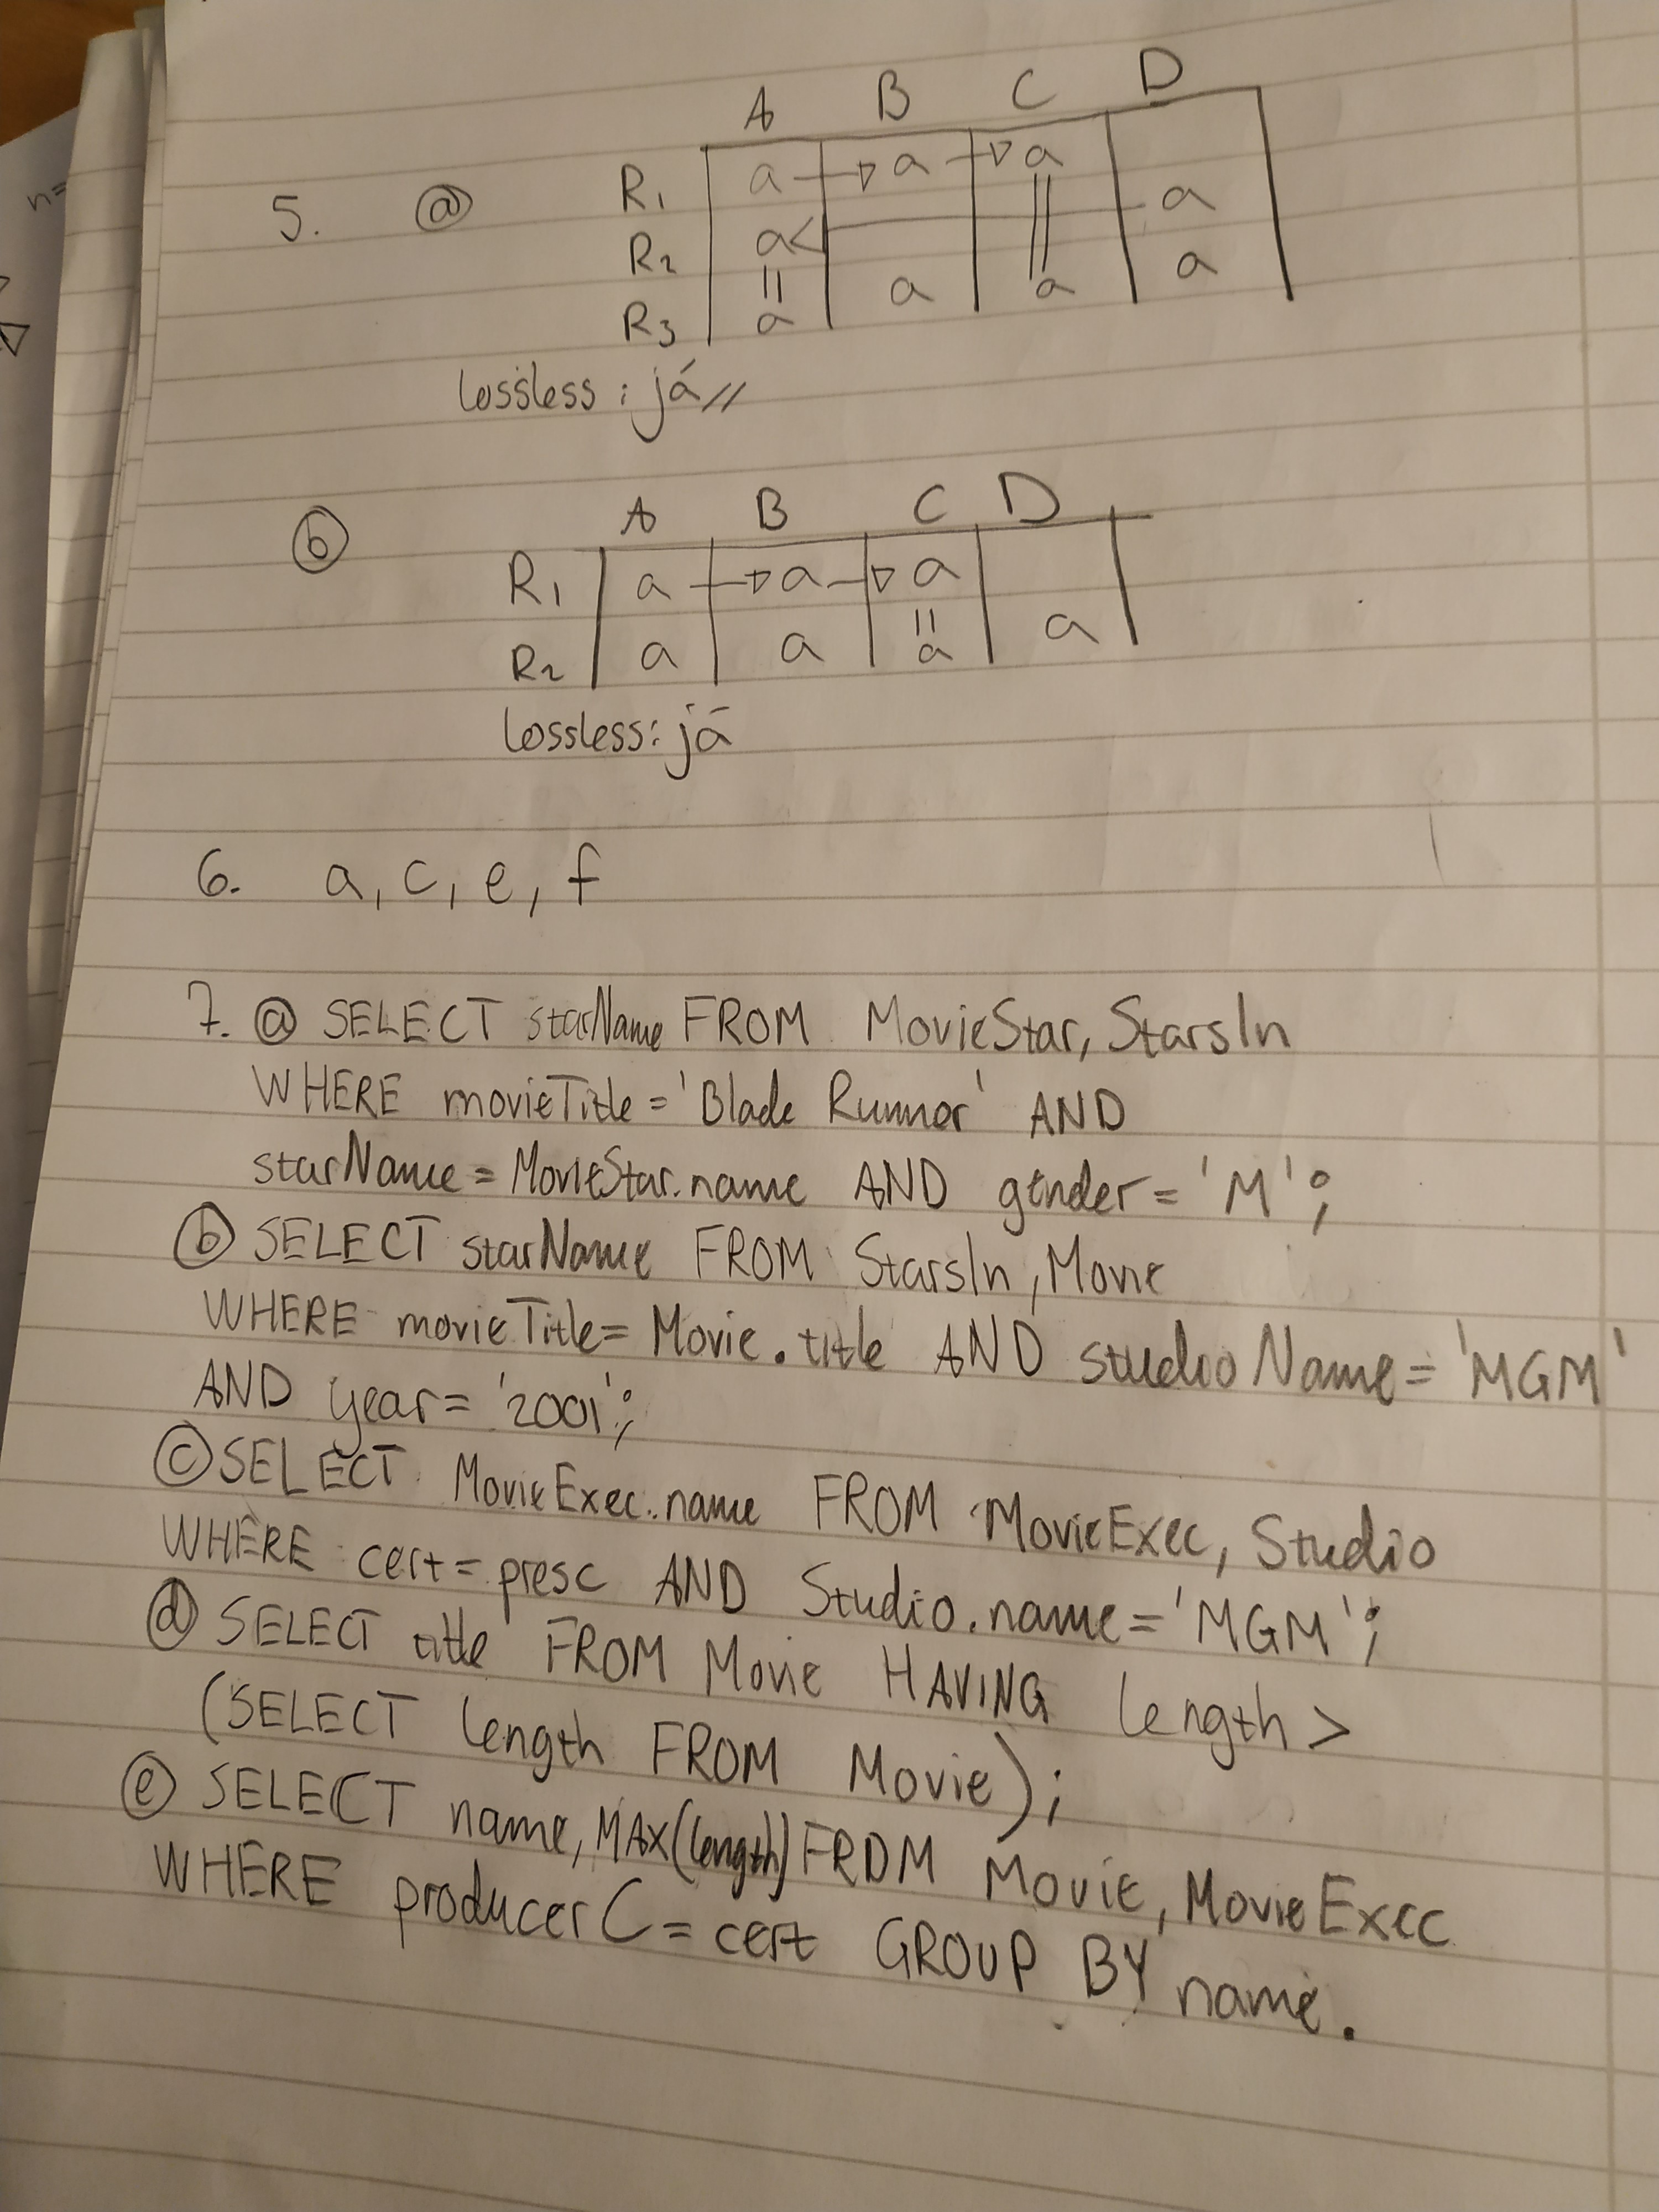 n=
A B C D
5. a R1 a a a
R2 a a
R3 a a a a
lossless: já
b A B C D
R1 a a a
R2 a a a a
lossless: já
6. a, c, e, f
7. a SELECT starName FROM MovieStar, StarsIn
WHERE movieTitle = 'Blade Runner' AND
starName = MovieStar.name AND gender = 'M';
b SELECT starName FROM StarsIn, Movie
WHERE movieTitle = Movie.title AND studioName = 'MGM'
AND year = '2001';
c SELECT MovieExec.name FROM MovieExec, Studio
WHERE cert = presc AND Studio.name = 'MGM';
d SELECT title FROM Movie HAVING length >
(SELECT length FROM Movie);
e SELECT name, MAX(length) FROM Movie, MovieExec
WHERE producerC = cert GROUP BY name.